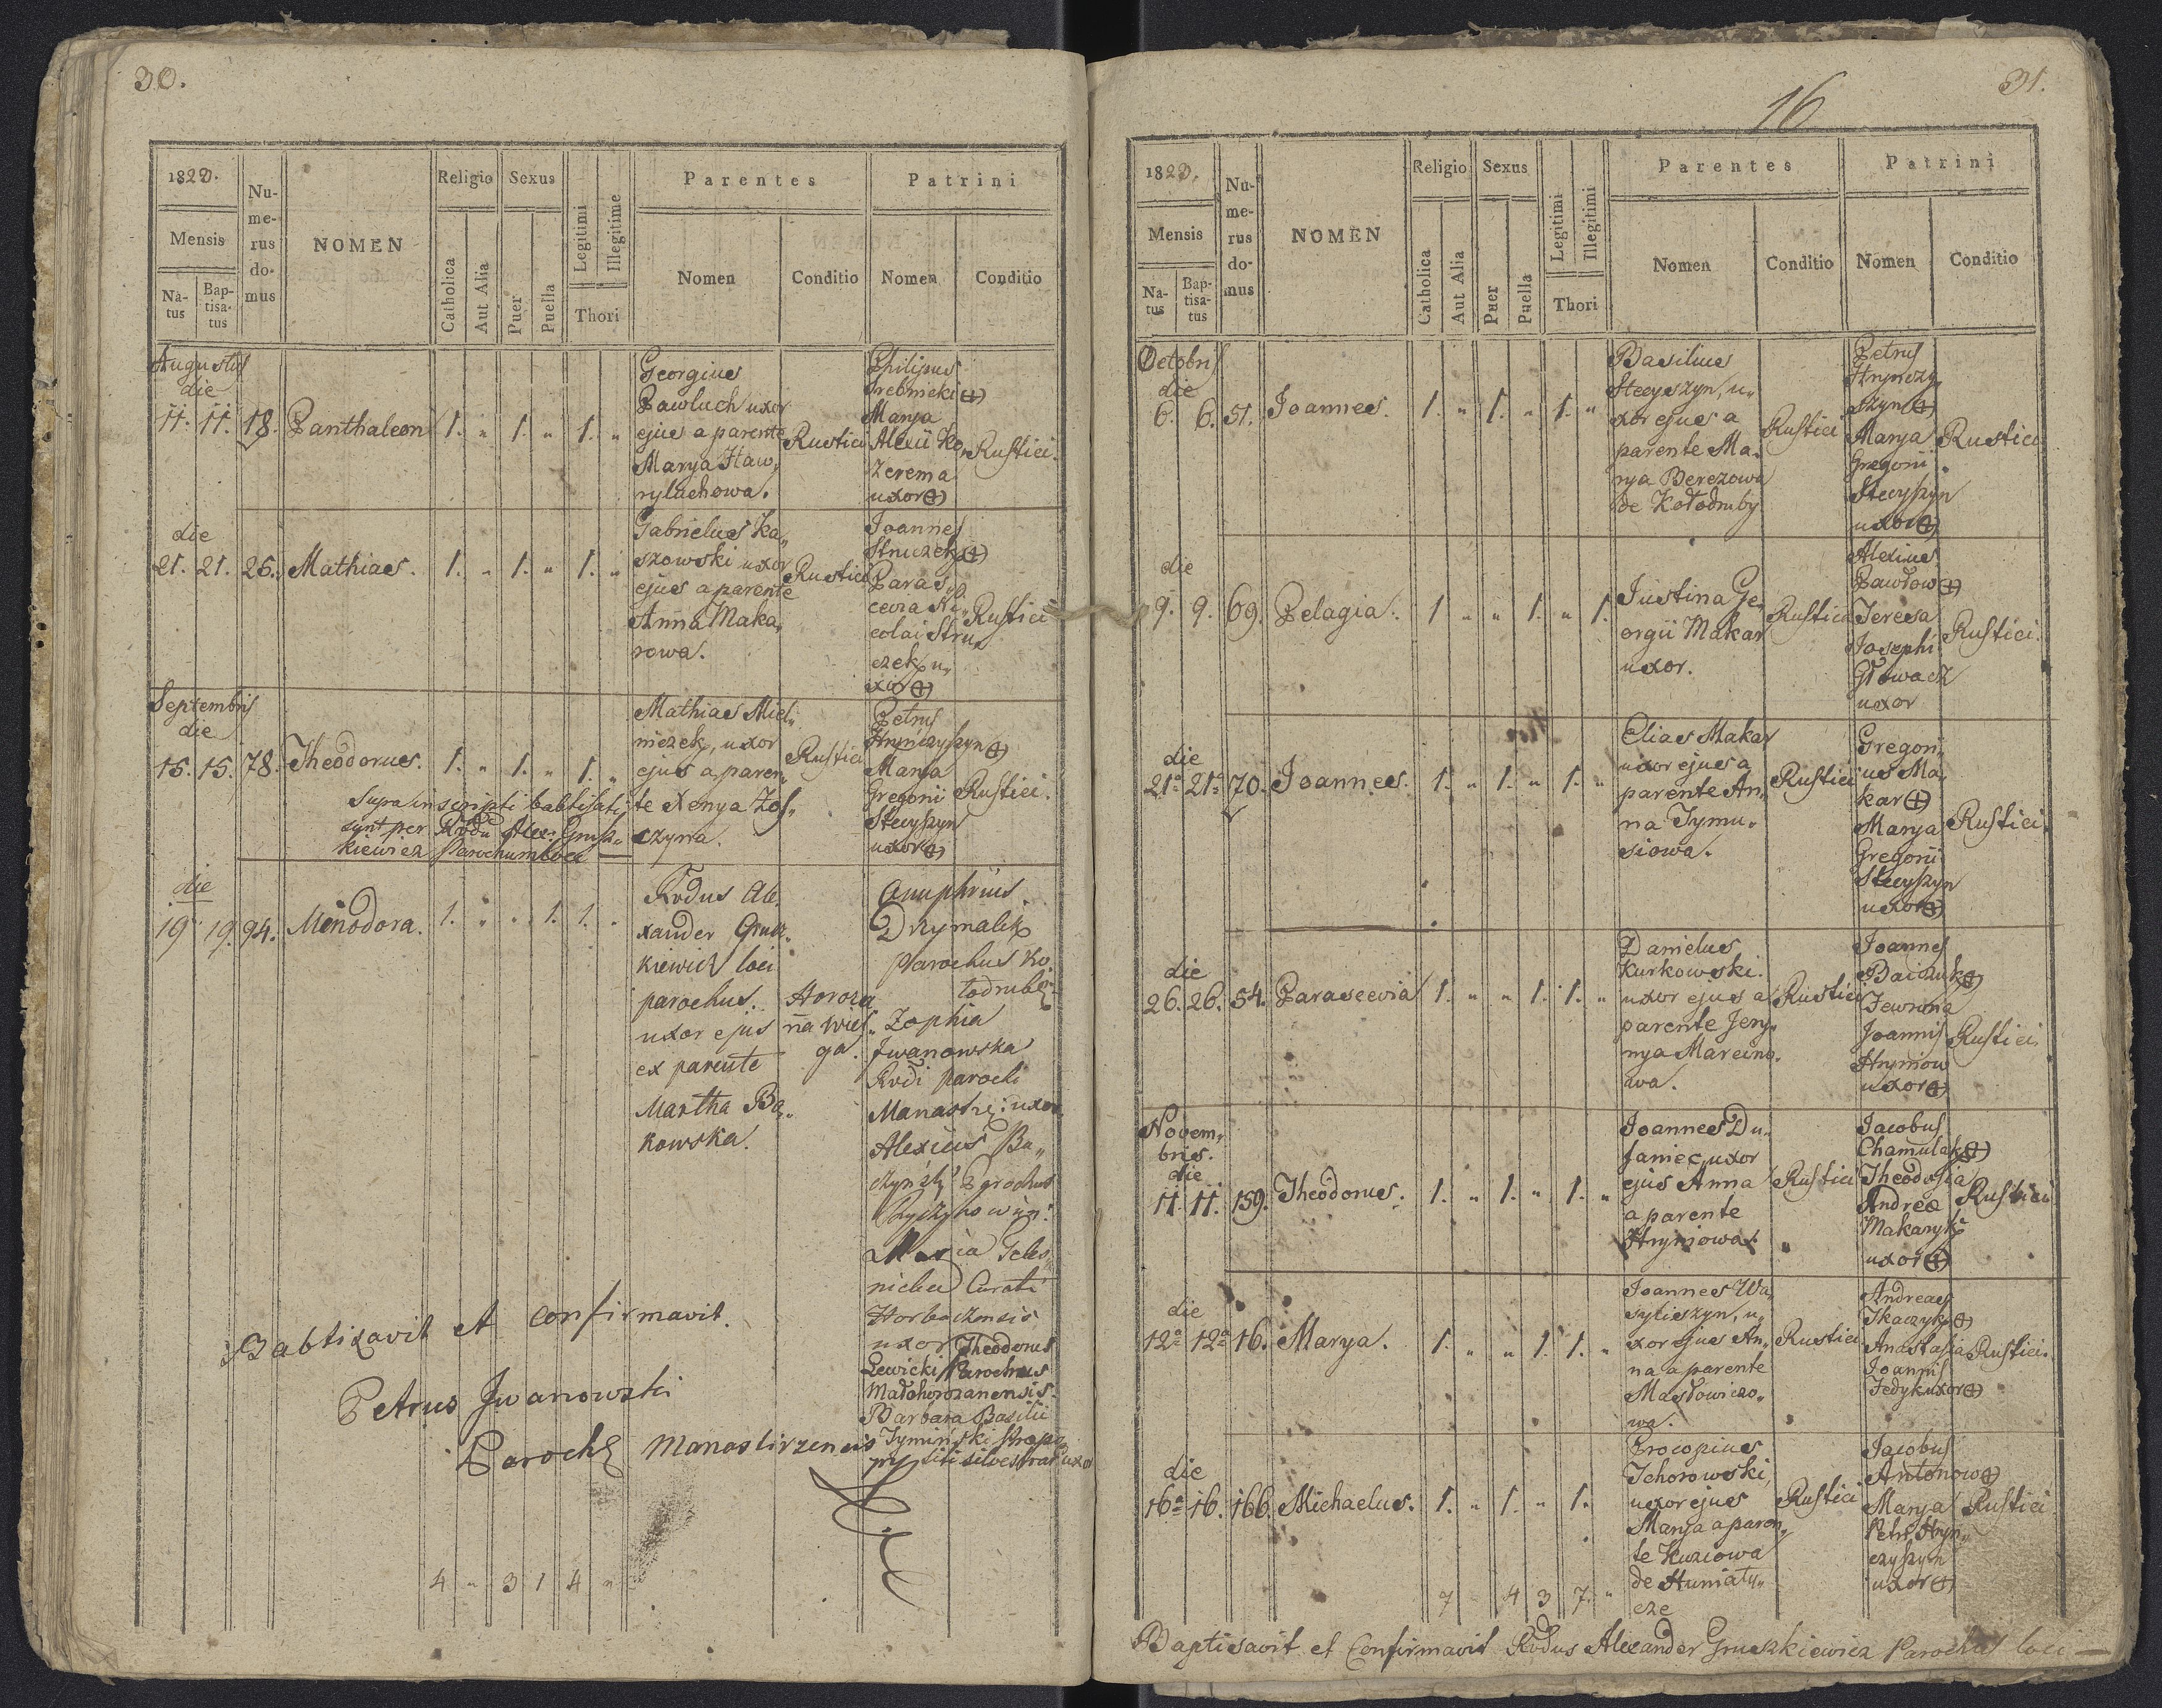 30.
1820.
Mensis
Na-
tus
Bap-
tisa-
tus
Nu-
me-
rus
do-
mus
NOMEN
Religio
Catholica
Aut Alia
Sexus
Puer
Puella
Legitimi
Illegitime
Thori
Parentes
Nomen
Conditio
Patrini
Nomen
Conditio
Augusti
die
11. 11. 18. Panthaleon 1. „ 1. „ 1. „
Georgius
Pawluch uxor
ejus a parente
Marya Haw„
rylachowa.
Rustici
Philipus
Srebnicki (+)
Marya
Alexii Ko„
zerema
uxor (+)
Rustici.
die
21. 21. 26. Mathias. 1. „ 1. „ 1. „
Gabrielus Ka„
szowski uxor
ejus a parente
Anna Maka„
rowa.
Rustici
Joannes
Struczek (+)
Paras„
cevia Ni„
colai Stru„
czek u„
xor (+)
Rustici
Septembris
die
15. 15. 78. Theodorus. 1. „ 1. „ 1. „
Mathias Miel„
niczek, uxor
ejus a paren„
te Xenya Zos„
czyna.
Rustici
Petrus
Hrynczyszyn (+)
Marya
Gregorii
Stecyszyn
uxor (+)
Rustici.
Supra inscripti babtisati
sunt per Rvdu Alex: Grusz„
kiewicz Parochum loci
die
19 19. 94. Menodora. 1. „ „ 1. 1. „
Rvdus Ale„
xander Grusz„
kiewicz loci
parochus.
uxor ejus
ex parente
Martha Ba„
kowska.
Horoza
na Wiel„
ga.
Onuphrius
Drymalik
parochus Ko„
lodrub:
Zophia
Iwanowska
Rvdi parochi
Manastrz: uxor
Alexius Ba„
czyński Parochus
Maria Teles„
nicka Curati
Horbaczensis
uxor Theodorus
Lewicki Parochus
Małohorozanensis.
Barbara Basilii
Tyminski
uxor
Babtizavit et confirmavit.
Petrus Iwanowski
Paroch Manastirzensis
4 „ 3 1 4 „
16
31.
1820.
Mensis
Na-
tus
Bap-
tisa-
tus
Nu-
me-
rus
do-
mus
NOMEN
Religio
Catholica
Aut Alia
Sexus
Puer
Puella
Legitimi
Illegitimi
Thori
Parentes
Nomen
Conditio
Patrini
Nomen
Conditio
Octobris
die
6. 6. 51. Joannes. 1. „ 1. „ 1. „
Basilius
Stecyszyn, u„
xor ejus a
parente Ma„
rya Berezowa
de Kołodruby
Rustici
Petrus
Hrynczy„
szyn (+)
Marya
Gregorii
Stecyszyn
uxor (+)
Rustici
die
9. 9. 69. Pelagia. 1 „ „ 1. „ 1.
Justina Ge„
orgii Makar
uxor.
Rustici
Alexius
Pawłow (+)
Teresa
Josephi
Głowacz
uxor
Rustici.
die
21a 21a 70. Joannes. 1. „ 1. „ 1. „
Elias Makar
uxor ejus a
parente An„
na Tymu„
siowa.
Rustici
Gregori„
us Ma„
kar (+)
Marya
Gregorii
Stecyszyn
uxor (+)
Rustici.
die
26. 26. 54. Parascevia 1. „ „ 1. 1. „
Danielus
Kurkowski.
uxor ejus a
parente Jery„
nya Marcino„
wa.
Rustici
Joannes
(+)
Joannis
Hryniow
uxor (+)
Rustici.
Novem„
bris.
die
11. 11. 159. Theodorus. 1. „ 1. „ 1. „
Joannes Du„
janiec, uxor
ejus Anna
a parente
Hryniowa.
Rustici
Jacobus
Chamulak (+)
Theodosia
Andreæ
Makaryk
uxor (+)
Rustici
die
12a 12a 16. Marya. 1. „ „ 1. 1. „
Joannes Wa„
syliszyn, u„
xor ejus An„
na a parente
Masłowiczo„
wa.
Rustici
Andreas
Tkaczyk (+)
Anastasia
Joannis
Fedyk uxor (+)
Rustici.
die
16a 16. 166. Michaelus. 1. „ 1. „ 1.
Procopius
Tchorowski,
uxor ejus
Marya a paren„
te Kuziowa
de Humiaty„
cze
Rustici
Jacobus
Antonow (+)
Marya
Petri Hryn„
czyszyn
uxor (+)
Rustici
7 „ 4 3 7. „
Baptisavit et Confirmavit Rvdus Alexander Gruszkiewicz Parochus loci —